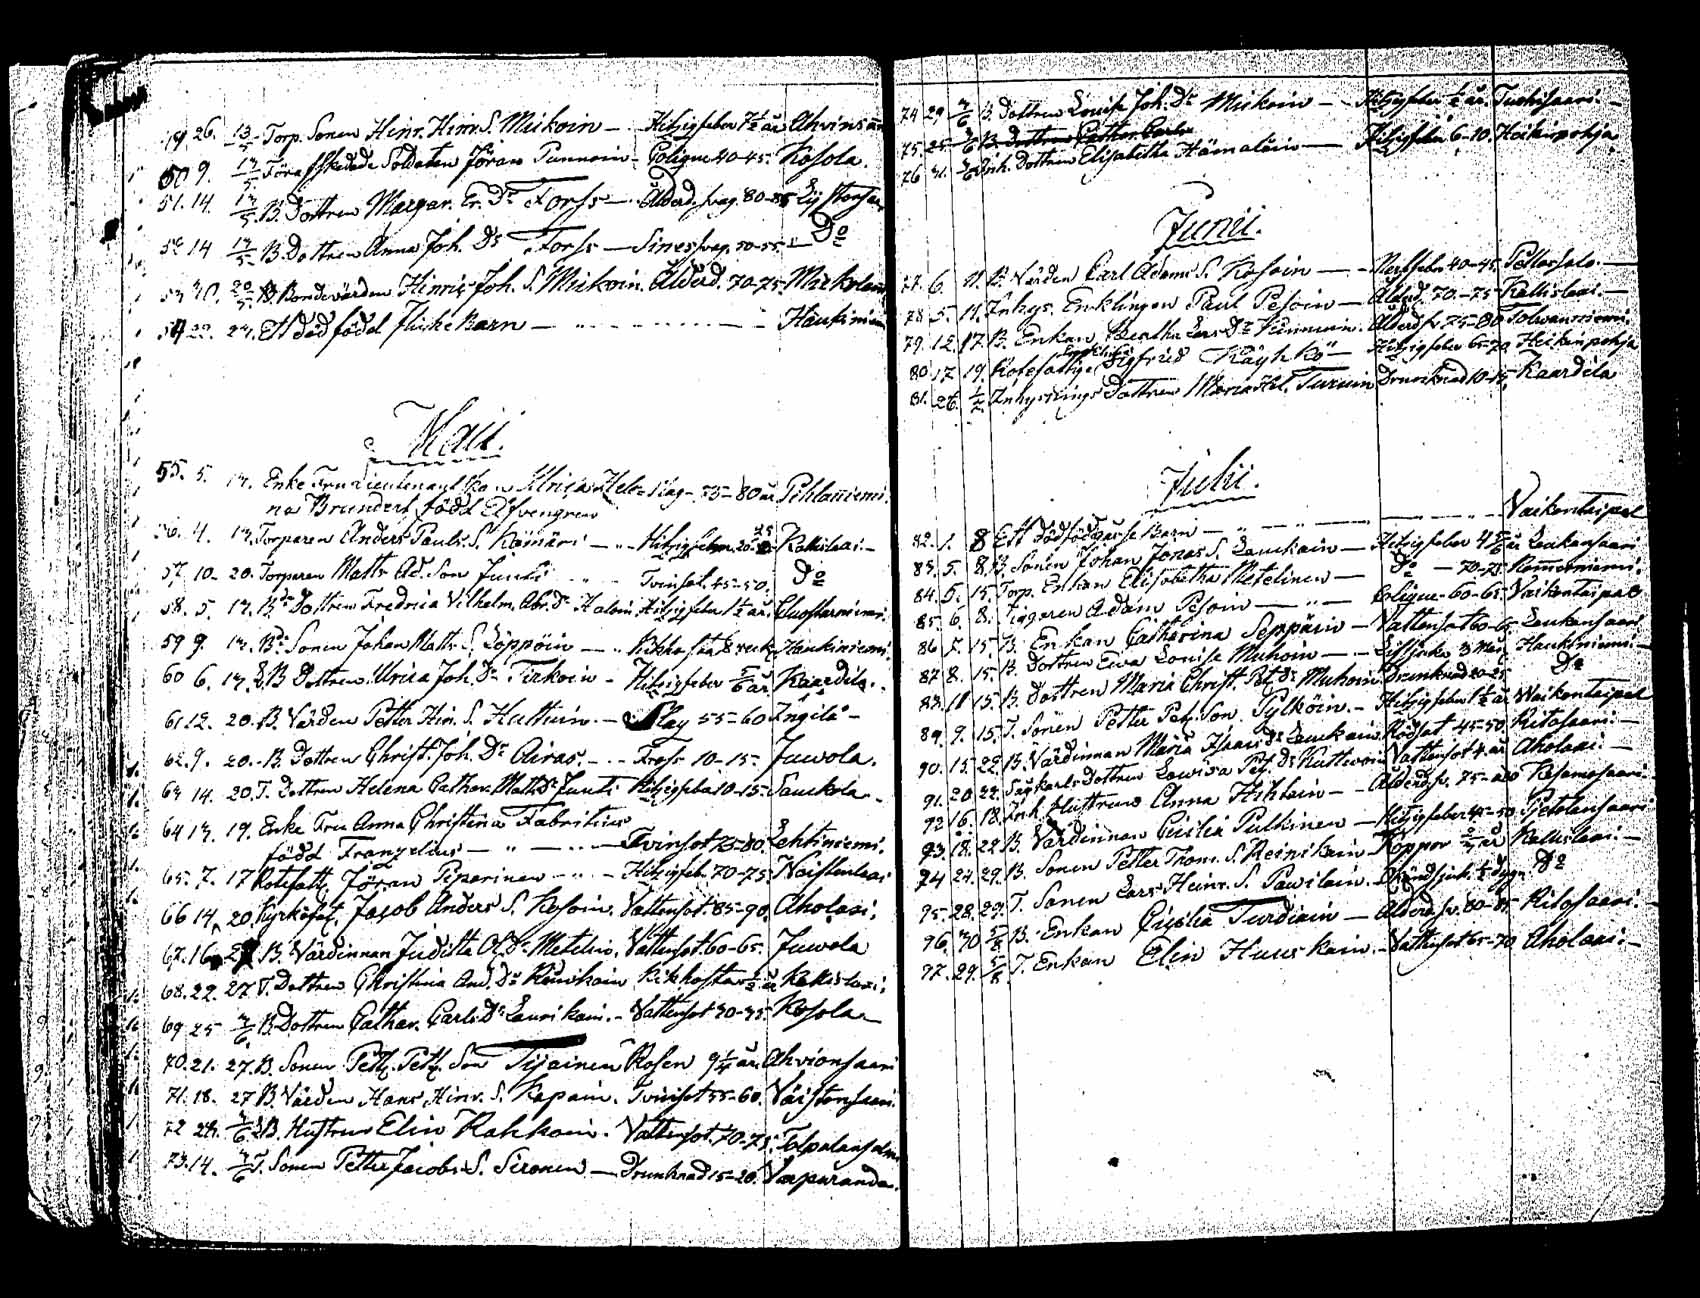 49. 26. 13/5 Torp. Sonen Hinr. Hinr. S. Mickoin — Hitzigfeber 7½ år Ahvinsaari
50 9. 17/5. Förafskedade Soldaten Jöran Punnoin — Colique 40-45. Kosola.
51. 14. 17/5. B. Dottren Margar. Er. Dr Forss — Ålderd. svag. 80-85
52 14 17/5 B. Dottren Anna Joh. Dr Forss — Sinessvag. 50-55 Do
53 30. 20/5 Bondevärden Hinric Joh. S. Mickoin. Ålderd. 70-75. Mickolaniemi
54 22. 27. Ett dödfödd flicke Barn — Haukiniemi
Maii.
55. 5. 17. Enke Fru Lieutenantskan Ulrica Hele= Slag — 75-80 år Pihlaniemi.
na Brundert född Elfvengren
56. 4. 17. Torparen Anders Pauls. S. Kämäri — Hitzigfeber 20-25 Kallislaai —
57. 10 — 20. Torparen Matts Ad. Son Junti Tvinsot. 45-50. Do
58. 5. 17. Bde Dottren Fredrica Vilhelm. Abr. Dr Haloin Hitzigfeber 1½ år.
59 9. 17. B. Sonen Johan Matts. S. Loppöin — Kikhosta 8 veck. Haukiniemi.
60 6. 17. B Dottren Ulrica Joh. Dr Tirkoin — Hitzigfeber 5/6 år Kaardila.
61 12. 20. B. Värden Petter Hin. S. Huttuin. — Slag 55-60 Ingilä —
62. 9. 20. B. Dottren Christ. Joh. Dr Airas. — Fross 10-15. Juvola.
63 14. 20. T. Dottren Helena Cathar. Matts Dr Junti Hitzigfeber 10-15. Sauckola
64 17. 19. Enke Fru Anna Christina Fabritius
född Franzelius — Tvinsot 75-80. Lehtiniemi.
65. 7. 17 Rotefatt. Jöran Piparinen Hitzigfeb. 70-75. Naistenlaai
66 14. 20. Kyrkofat. Jacob Anders S. Kosoin. Vattensot. 85-90. Aholaai.
67. 16. B. Värdinnan Juditta Ol. Dr Metelin. Vattensot 60-65. Juvola
68. 22. 27 T. Dottren Christina And. Dr Reinikain Kikhosta ½ år Kallislaai.
69 25 3/6 B. Dottren Cathar. Carls Dr Laurikain. — Vattensot 30-35. Kosola —
70. 21. 27. B. Sonen Pett. Pett. Son Tijainen Rosen 9¼ år. Ahvionsaari
71. 18. 27 B. Värden Hans Hinr. S. Kapain. Tvinsot 55-60. Väistonsaari.
72 24. 3/6 B. Hustrun Elin Kakkoin. Vattensot. 70-75. Tolpalansalmi
73. 14. 3/6 T. Sonen Petter Jacobs S. Sironen — Drunknad 15-20. Varparanda.
74 29 3/6 B. Dottren Lovisa Joh. Dr Mickoin — Hitzigfeber ½ år. Tuohisaari.
75. 25 B. Dottren Cathar. Carls
76 31. Inh. Dottren Elisabetha Hämäläin — Hitzigfeber 6-10. Heikinpohja.
Junii.
77. 6. 11. B. Värden Carl Adams S. Kosoin — Nervfeber 40-45. Pellossalo.
78. 5. 11. Inhys. Enklingen Paul Pesoin — Ålderd. 70-75. Kallislaai. —
79. 12. 17. B. Enkan Bertha Lars Dr Älderd. sv. 75-80 Tolvanniemi.
80 17 19. Rotefattige Enklingen Sigfrid Käyhkö — Hitzigfeber 65-70. Heikinpohja
81. 26. 1/7. Inhysnings Dottren Maria Turuin Drunknad 10-15. Kaardila
Julii.
82. 1. 8 Ett dödfödd Barn — Vaikontaipal
83. 5. 8. B. Sonen Johan Jonas S. Laukain — Hitzigfeber 4 år Laukansaari
84. 5. 15. Torp. Enkan Elisabetha Metelinen — Do — 70-75.
85. 6. 8. Tiggaren Adam Pesoin — Colique — 60-65. Vaikontaipal
86 5. 15. B. Enkan Catharina Seppäin — Vattensot 60-65. Laukansaari
87 8. 15. B. Dottren Eva Lovise Muhoin — 3 Mån. Haukiniemi —
88. 11 15. B. Dottren Maria Christ. Pet. Dr Muhoin Drunknad 20-25 Do
89. 9. 15. T. Sonen Petter Pet. Son Pylköin. — Hitzigfeber 1½ år Vaikontaipal
90. 15. 22. B. Värdinnan Maria Isaacs Dr Laukain Rödsot 45-50. Ritosaari —
91. 20 22. Dottren Lovisa Pet. Dr Kuttvoin Vattensot 4 år Aholaai. —
92 16. 18. Inh. Hustrun Anna Hihlain — Ålderd. sv. 75-80 Kesamosaari
93. 18. 22 B. Värdinnan Cicilia Pulkinen — Hitzigfeber 45-50. Pietolansaari
94 24. 29. B. Sonen Petter Thom. S. Reinikain Koppor år Kallislaai. —
95. 28. 29. T. Sonen Lars Heinr. S. Pavilain. ½ dygn. Do
96. 30 5/8 B. Enkan Cicilia Turdiain — Ålderd. sv. 80-85 Ritosaari. —
97. 29. 5/8. T. Enkan Elin Huuskain. Vattensot 65-70 Aholaai. —